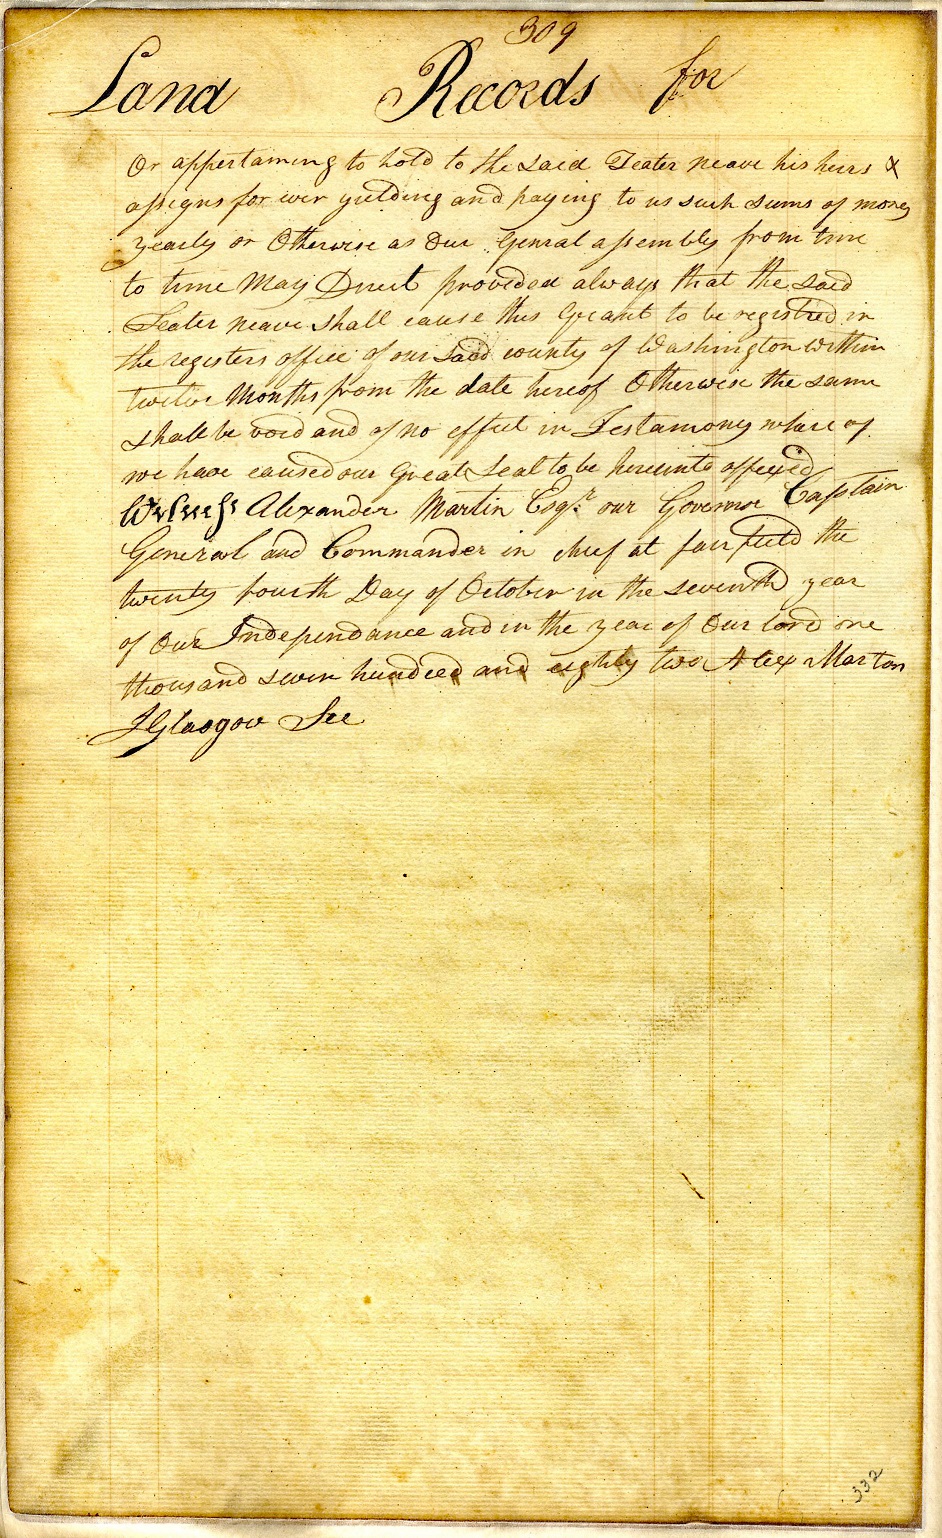 309
Land Records for
Or appertaining to hold to the said Teater neave his heirs &
assigns for ever yielding and paying to us such sums of money
yearly or Otherwise as Our Genral assembly from time
to time May Direct provided always that the said
Teater neave shall cause this Grant to be registred in
the registers office of our said county of Washington within
twelve Months from the date hereof Otherwise the same
shall be void and of no effect in Testamony where of
we have caused our Great Seal to be hereunto affixed
Witness Alexander Martin Esqr. our Governor Captain
General and Commander in chief at fairfield the
twenty fourth Day of October in the seventh year
of Our Independance and in the year of Our lord one
thousand seven hundred and eighty two Alex Marton
J Glasgow Sec
332